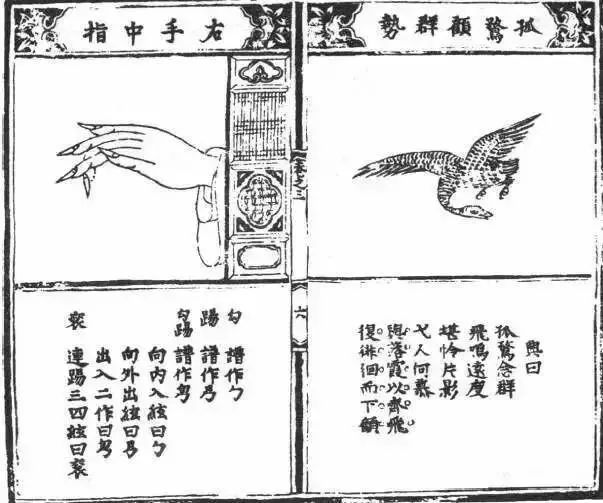 孤鶩顧群勢
興曰
孤鶩念群
飛鳴遠度
堪怜片影
弋人何慕
與落霞以齊飛
復徘徊而下顧
六
右手中指
勾 譜作勹
踢 譜作
勾踢 譜作
向内入絃曰勹
向外出絃曰
出入二作曰
袞 連踢三四絃曰袞